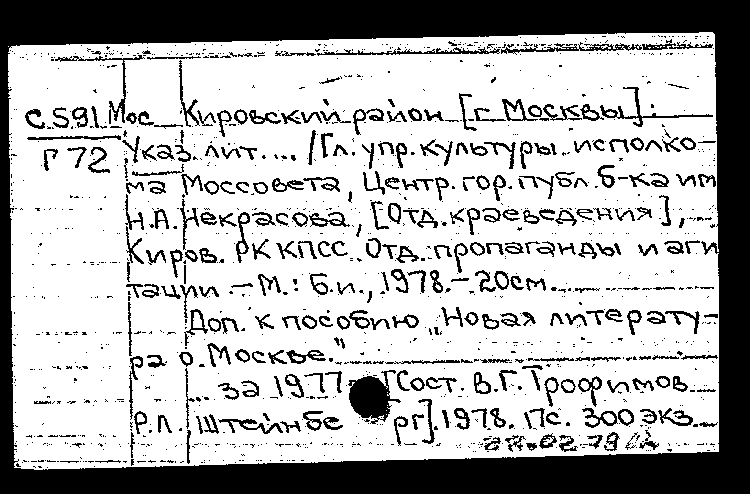 С591 Мос Кировский район [г. Москвы]:
Г72 Указ. лит. ... / Гл. упр. культуры исполко-
ма Моссовета, Центр. гор. публ. б-ка им
Н.А. Некрасова, [Отд. краеведения],
Киров. РК КПСС. Отд. пропаганды и аги
тации. – М.: Б.и., 1978. – 20см.
Доп. к пособию „Новая литерату-
ра о Москве."
... за 1977 [Сост. В.Г. Трофимов
Р.Л. Штейнбе рг]. 1978. 17с. 300 экз.